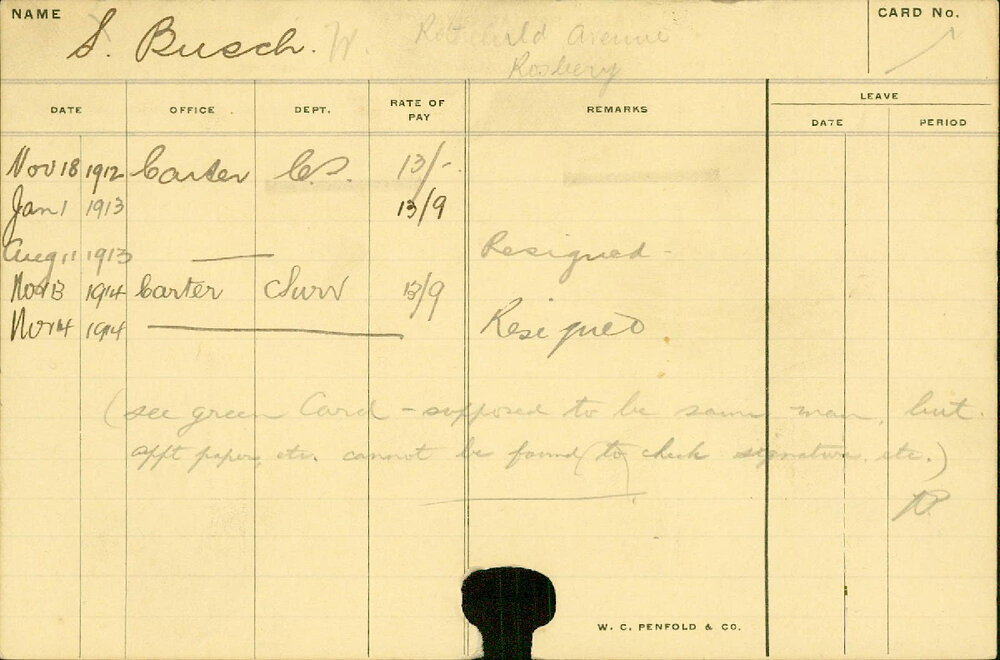 NAME
S. Busch. W.
Rothschild Avenue
Rosbery
CARD No.
DATE OFFICE DEPT. RATE OF PAY REMARKS LEAVE
DATE PERIOD
Nov 18 1912 Carter C.S. 13/-
Jan 1 1913 13/9
Aug 11 1913 — Resigned -
Nov 13 1914 Carter Surv 13/9
Nov 14 1914 — Resigned
(see green Card - supposed to be same man, but
appt paper, etc. cannot be found (to check signature, etc.)
W. C. PENFOLD & CO.